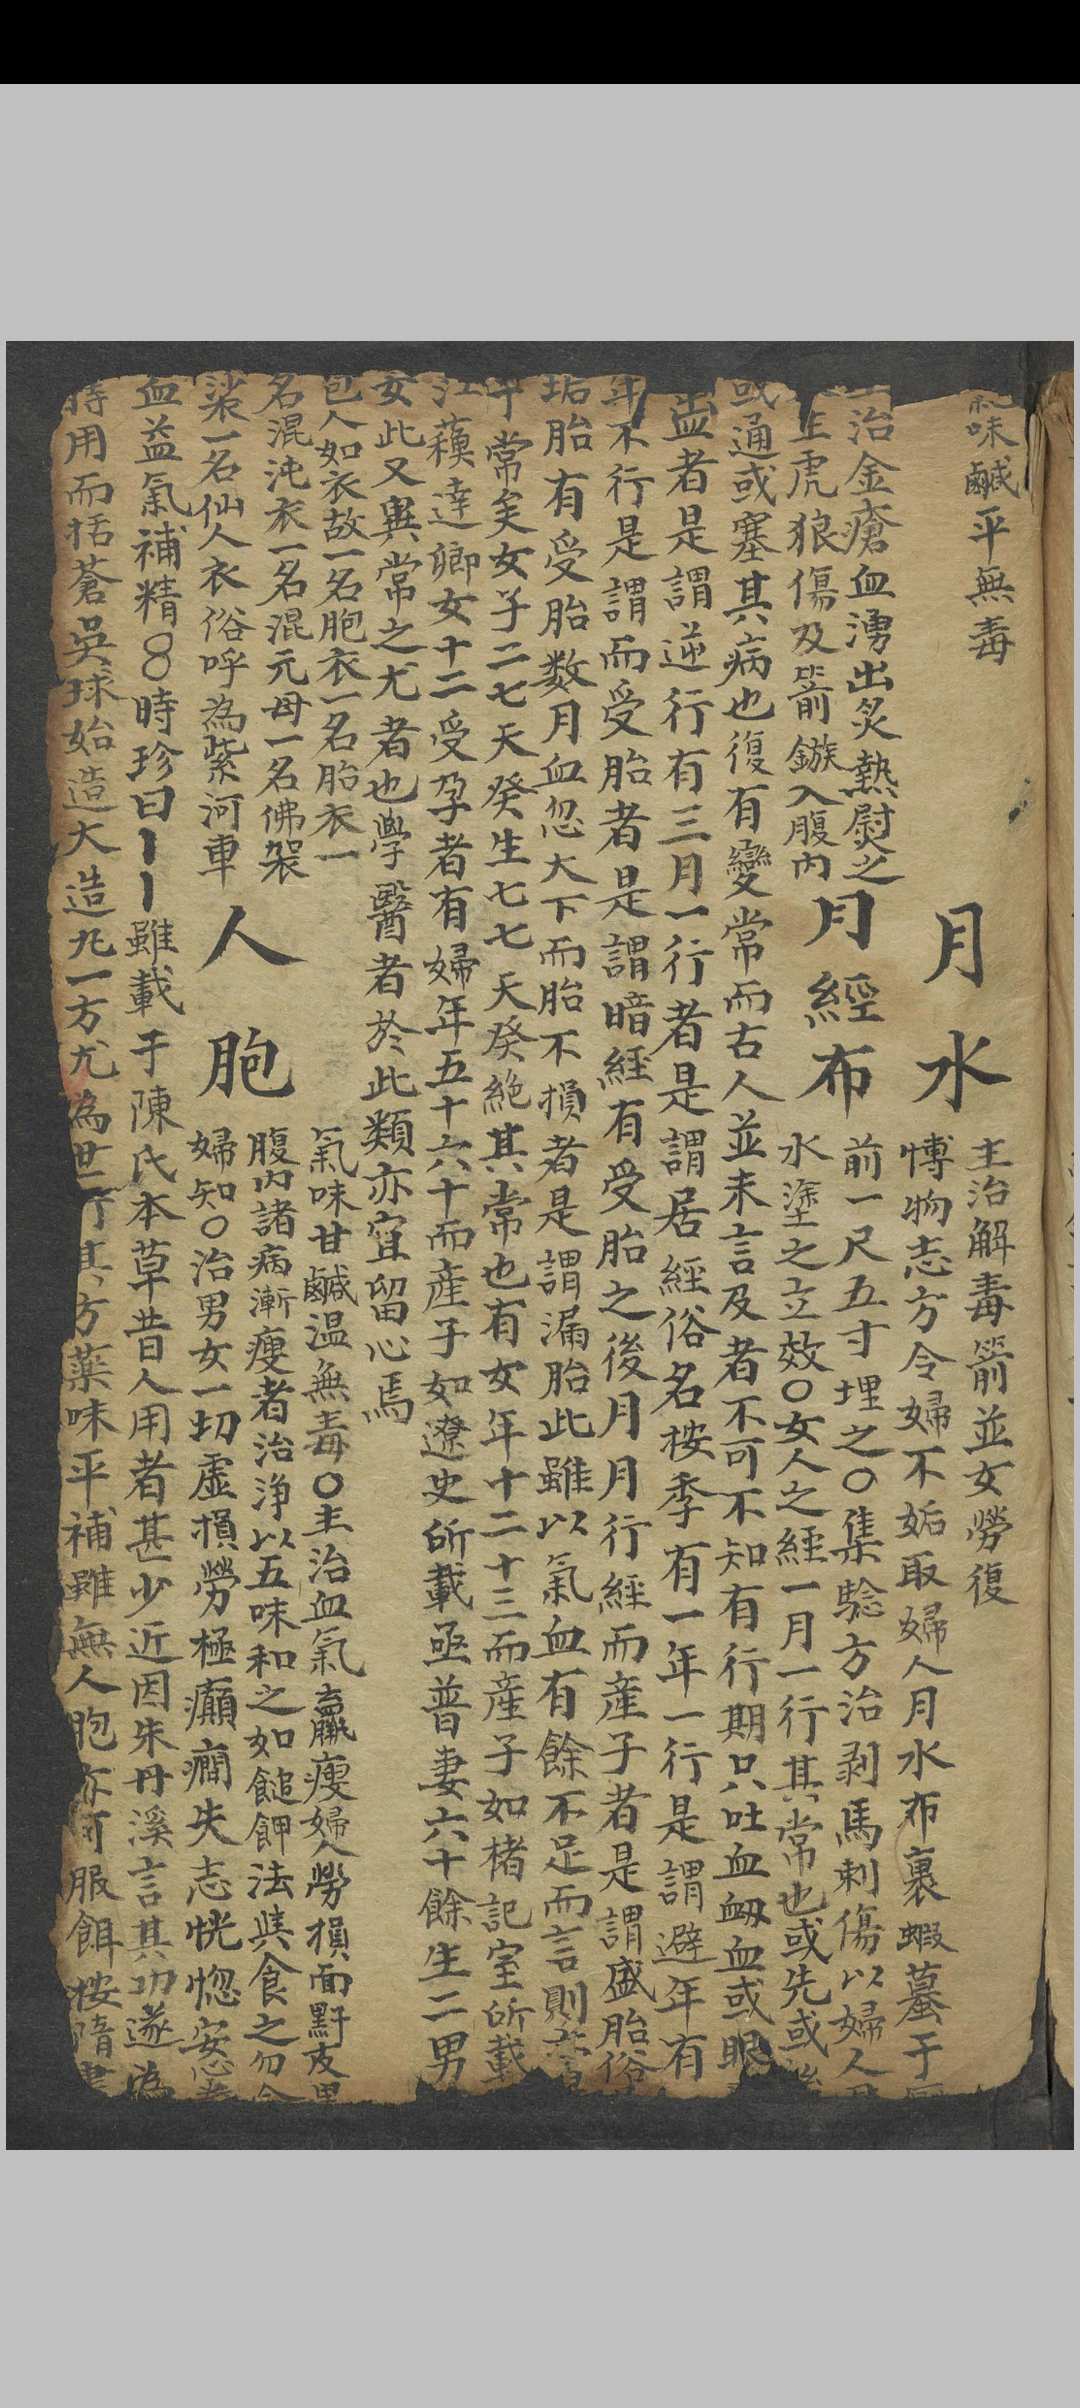 味鹹平無毒
月水
主治解毒箭並女勞復
博物志方令婦不姤取婦人月水布裹蝦蟇于
治金瘡血湧出炙熱熨之
主虎狼傷及箭鏃入腹內
月經布
前一尺五寸埋之〇集驗方治剥馬刺傷以婦人
水塗之立效〇女人之經一月一行其常也或先或
或通或塞其病也復有變常而古人並未言及者不可不知有行期只吐血衂血或眼
血者是謂逆行有三月一行者是謂居經俗名桉季有一年一行是謂避年有
年不行是謂而受胎者是謂暗經有受胎之後月月行經而產子者是謂盛胎俗
垢胎有受胎数月血忽大下而胎不損者是謂漏胎此雖以氣血有餘不足而言則
平常矣女子二七天癸生七七天癸絕其常也有女年十二十三而產子如楮記室所載
江蘱達卿女十二受孕者有婦年五十六十而產子如遼史所載亟普妻六十餘生二男
女此又異常之尤者也學醫者於此類亦宜留心焉
包人如衣故一名胞衣一名胎衣一
名混沌衣一名混元母一名佛袈
裟一名仙人衣俗呼為紫河車
人胞
氣味甘鹹温無毒〇主治血氣羸瘦婦人勞損面䵟皮
腹內諸病漸瘦者治淨以五味和之如䭔餌法與食之勿
婦知〇治男女一切虛損勞極癲癎失志恍惚安心
血益氣補精〇〇時珍曰丨丨雖載于陳氏本草昔人用者甚少近因朱丹溪言其功遂為
時用而括蒼吳球始造大造丸一方尤為世行其方藥味平補雖無人胞亦可服餌桉隋書